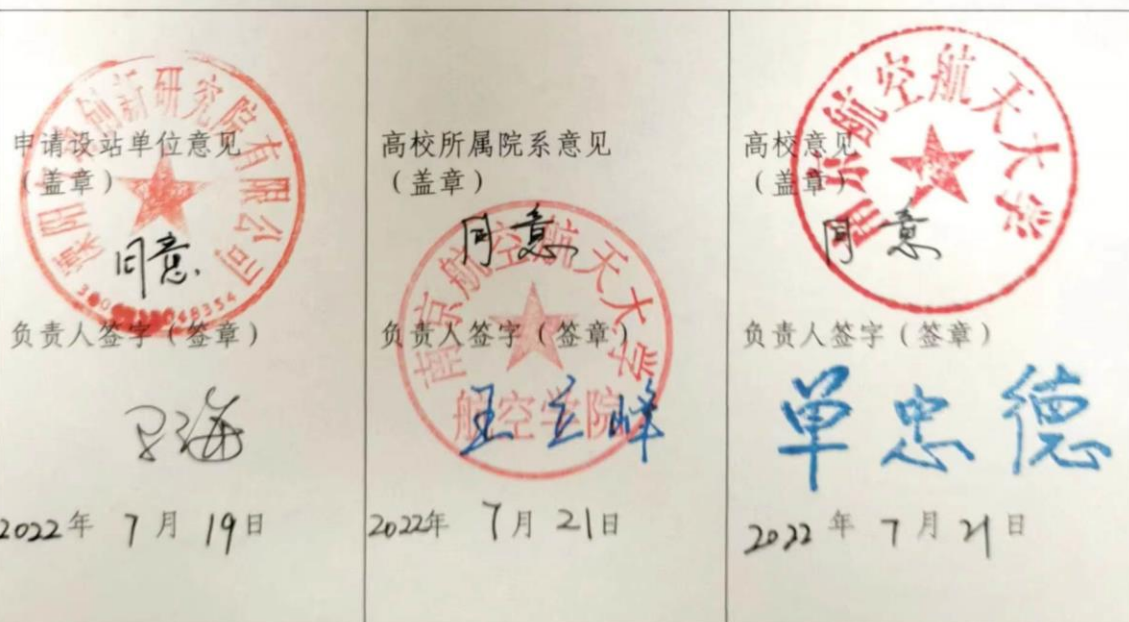 申请设站单位意见
（盖章）
创新研究院有限公司
同意
负责人签字（签章）
海
2022年 7月 19日
高校所属院系意见
（盖章）
同意
南京航空航天大学
航空学院
负责人签字（签章）
王立峰
2022年 7月 21日
高校意见
（盖章）
南京航空航天大学
同意
负责人签字（签章）
单忠德
2022年 7月 21日